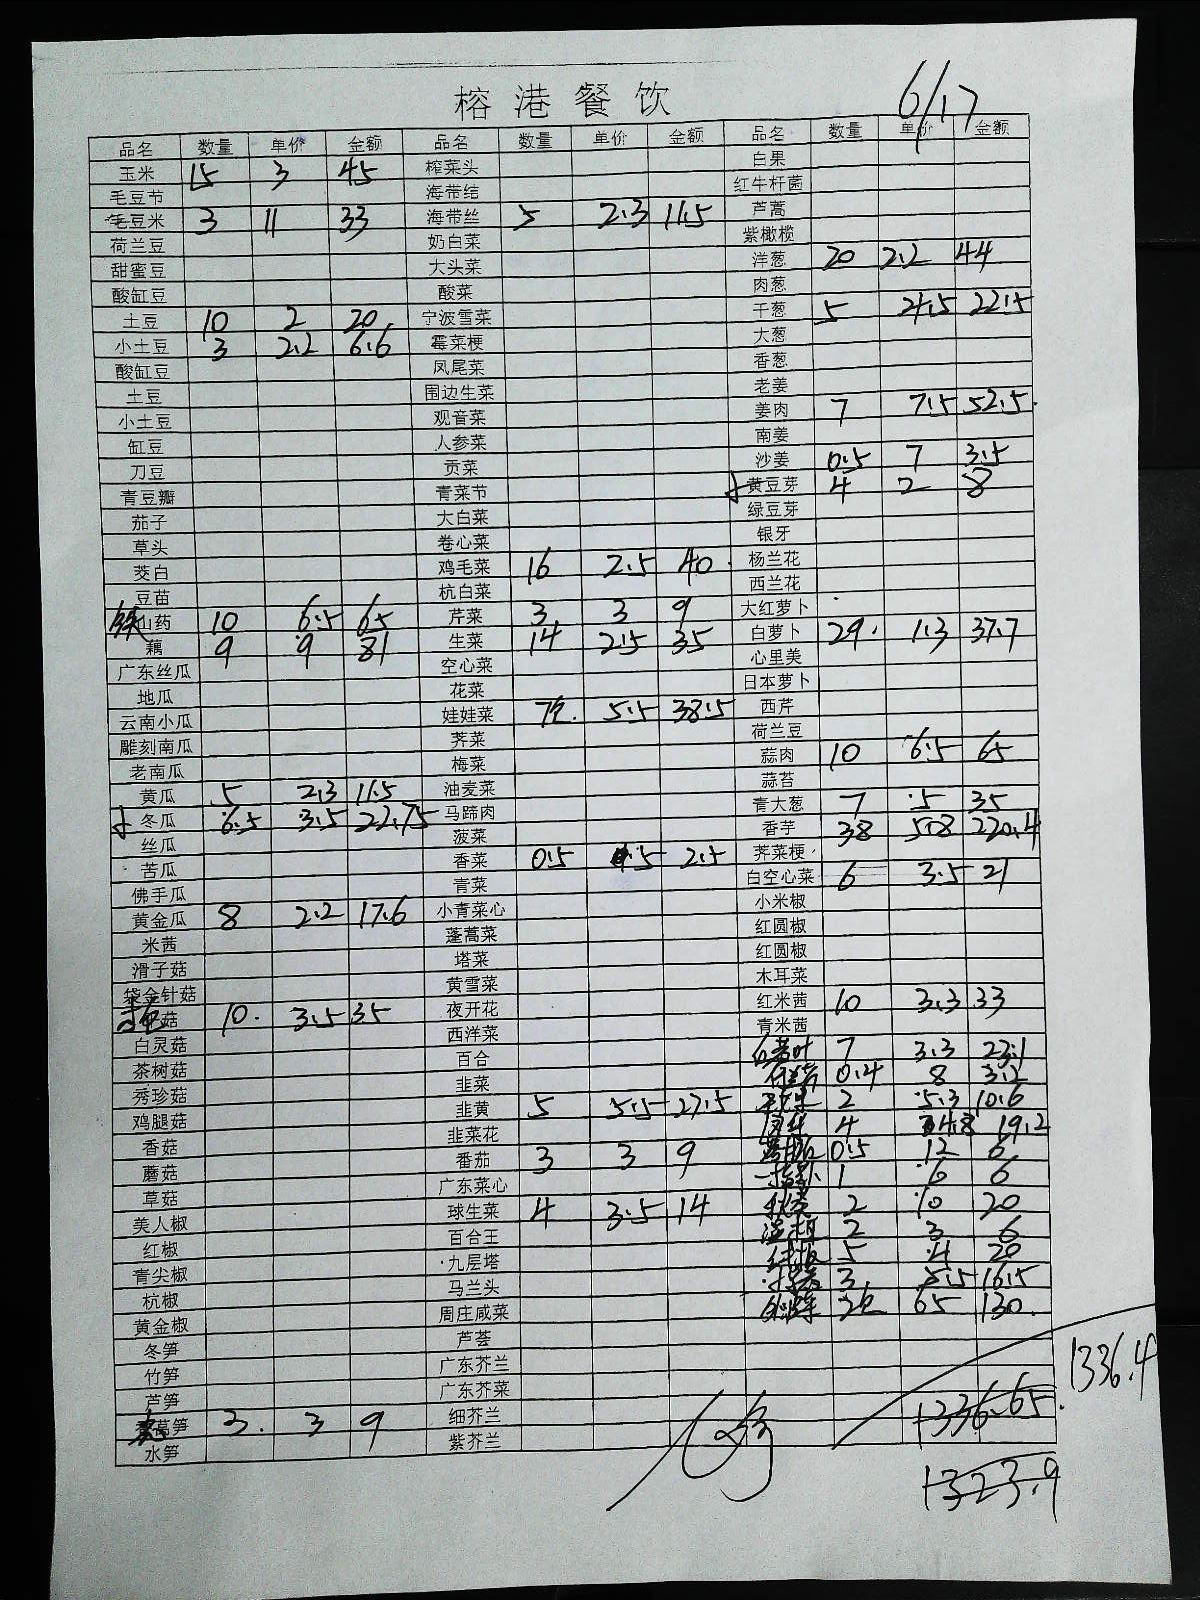 榕港餐饮
6/17
品名 数量 单价 金额 品名 数量 单价 金额 品名 数量 单价 金额
玉米 15 3 45 榨菜头 白果
毛豆节 海带结 红牛杆菌
毛豆米 3 11 33 海带丝 5 2.3 11.5 芦蒿
荷兰豆 奶白菜 紫橄榄
甜蜜豆 大头菜 洋葱 20 2.2 44
酸缸豆 酸菜 肉葱
土豆 10 2 20 宁波雪菜 干葱 5 4.5 22.5
小土豆 3 2.2 6.6 霉菜梗 大葱
酸缸豆 凤尾菜 香葱
土豆 围边生菜 老姜
小土豆 观音菜 姜肉 7 7.5 52.5
缸豆 人参菜 南姜
刀豆 贡菜 沙姜 0.5 7 3.5
青豆瓣 青菜节 黄豆芽 4 2 8
茄子 大白菜 绿豆芽
草头 卷心菜 银牙
茭白 鸡毛菜 16 2.5 40 杨兰花
豆苗 杭白菜 西兰花
铁山药 10 6.5 65 芹菜 3 3 9 大红萝卜
藕 9 9 81 生菜 14 2.5 35 白萝卜 29 1.3 37.7
广东丝瓜 空心菜 心里美
地瓜 花菜 日本萝卜
云南小瓜 娃娃菜 7包 5.5 38.5 西芹
雕刻南瓜 荠菜 荷兰豆
老南瓜 梅菜 蒜肉 10 6.5 65
黄瓜 5 2.3 11.5 油麦菜 蒜苔
冬瓜 6.5 3.5 22.75 马蹄肉 青大葱 7 5 35
丝瓜 菠菜 香芋 38 5.8 220.4
苦瓜 香菜 0.5 5 2.5 荠菜梗
佛手瓜 青菜 白空心菜 6 3.5 21
黄金瓜 8 2.2 17.6 小青菜心 小米椒
米茜 蓬蒿菜 红圆椒
滑子菇 塔菜 红圆椒
袋金针菇 黄雪菜 木耳菜
菇 10 3.5 35 夜开花 红米茜 10 3.3 33
白灵菇 西洋菜 青米茜
茶树菇 百合 7 3.3 23.1
秀珍菇 韭菜 0.4 8 3.2
鸡腿菇 韭黄 5 5.5 27.5 2 5.3 10.6
香菇 韭菜花 4 4.8 19.2
蘑菇 番茄 3 3 9 0.5 12 6
草菇 广东菜心 1 6 6
美人椒 球生菜 4 3.5 14 2 10 20
红椒 百合王 2 3 6
青尖椒 九层塔 5 4 20
杭椒 马兰头 3 5.5 16.5
黄金椒 周庄咸菜 2包 65 130
冬笋 芦荟
竹笋 广东芥兰
芦笋 广东芥菜
莴笋 3 3 9 细芥兰
水笋 紫芥兰
1336.4
1336.65
1323.9